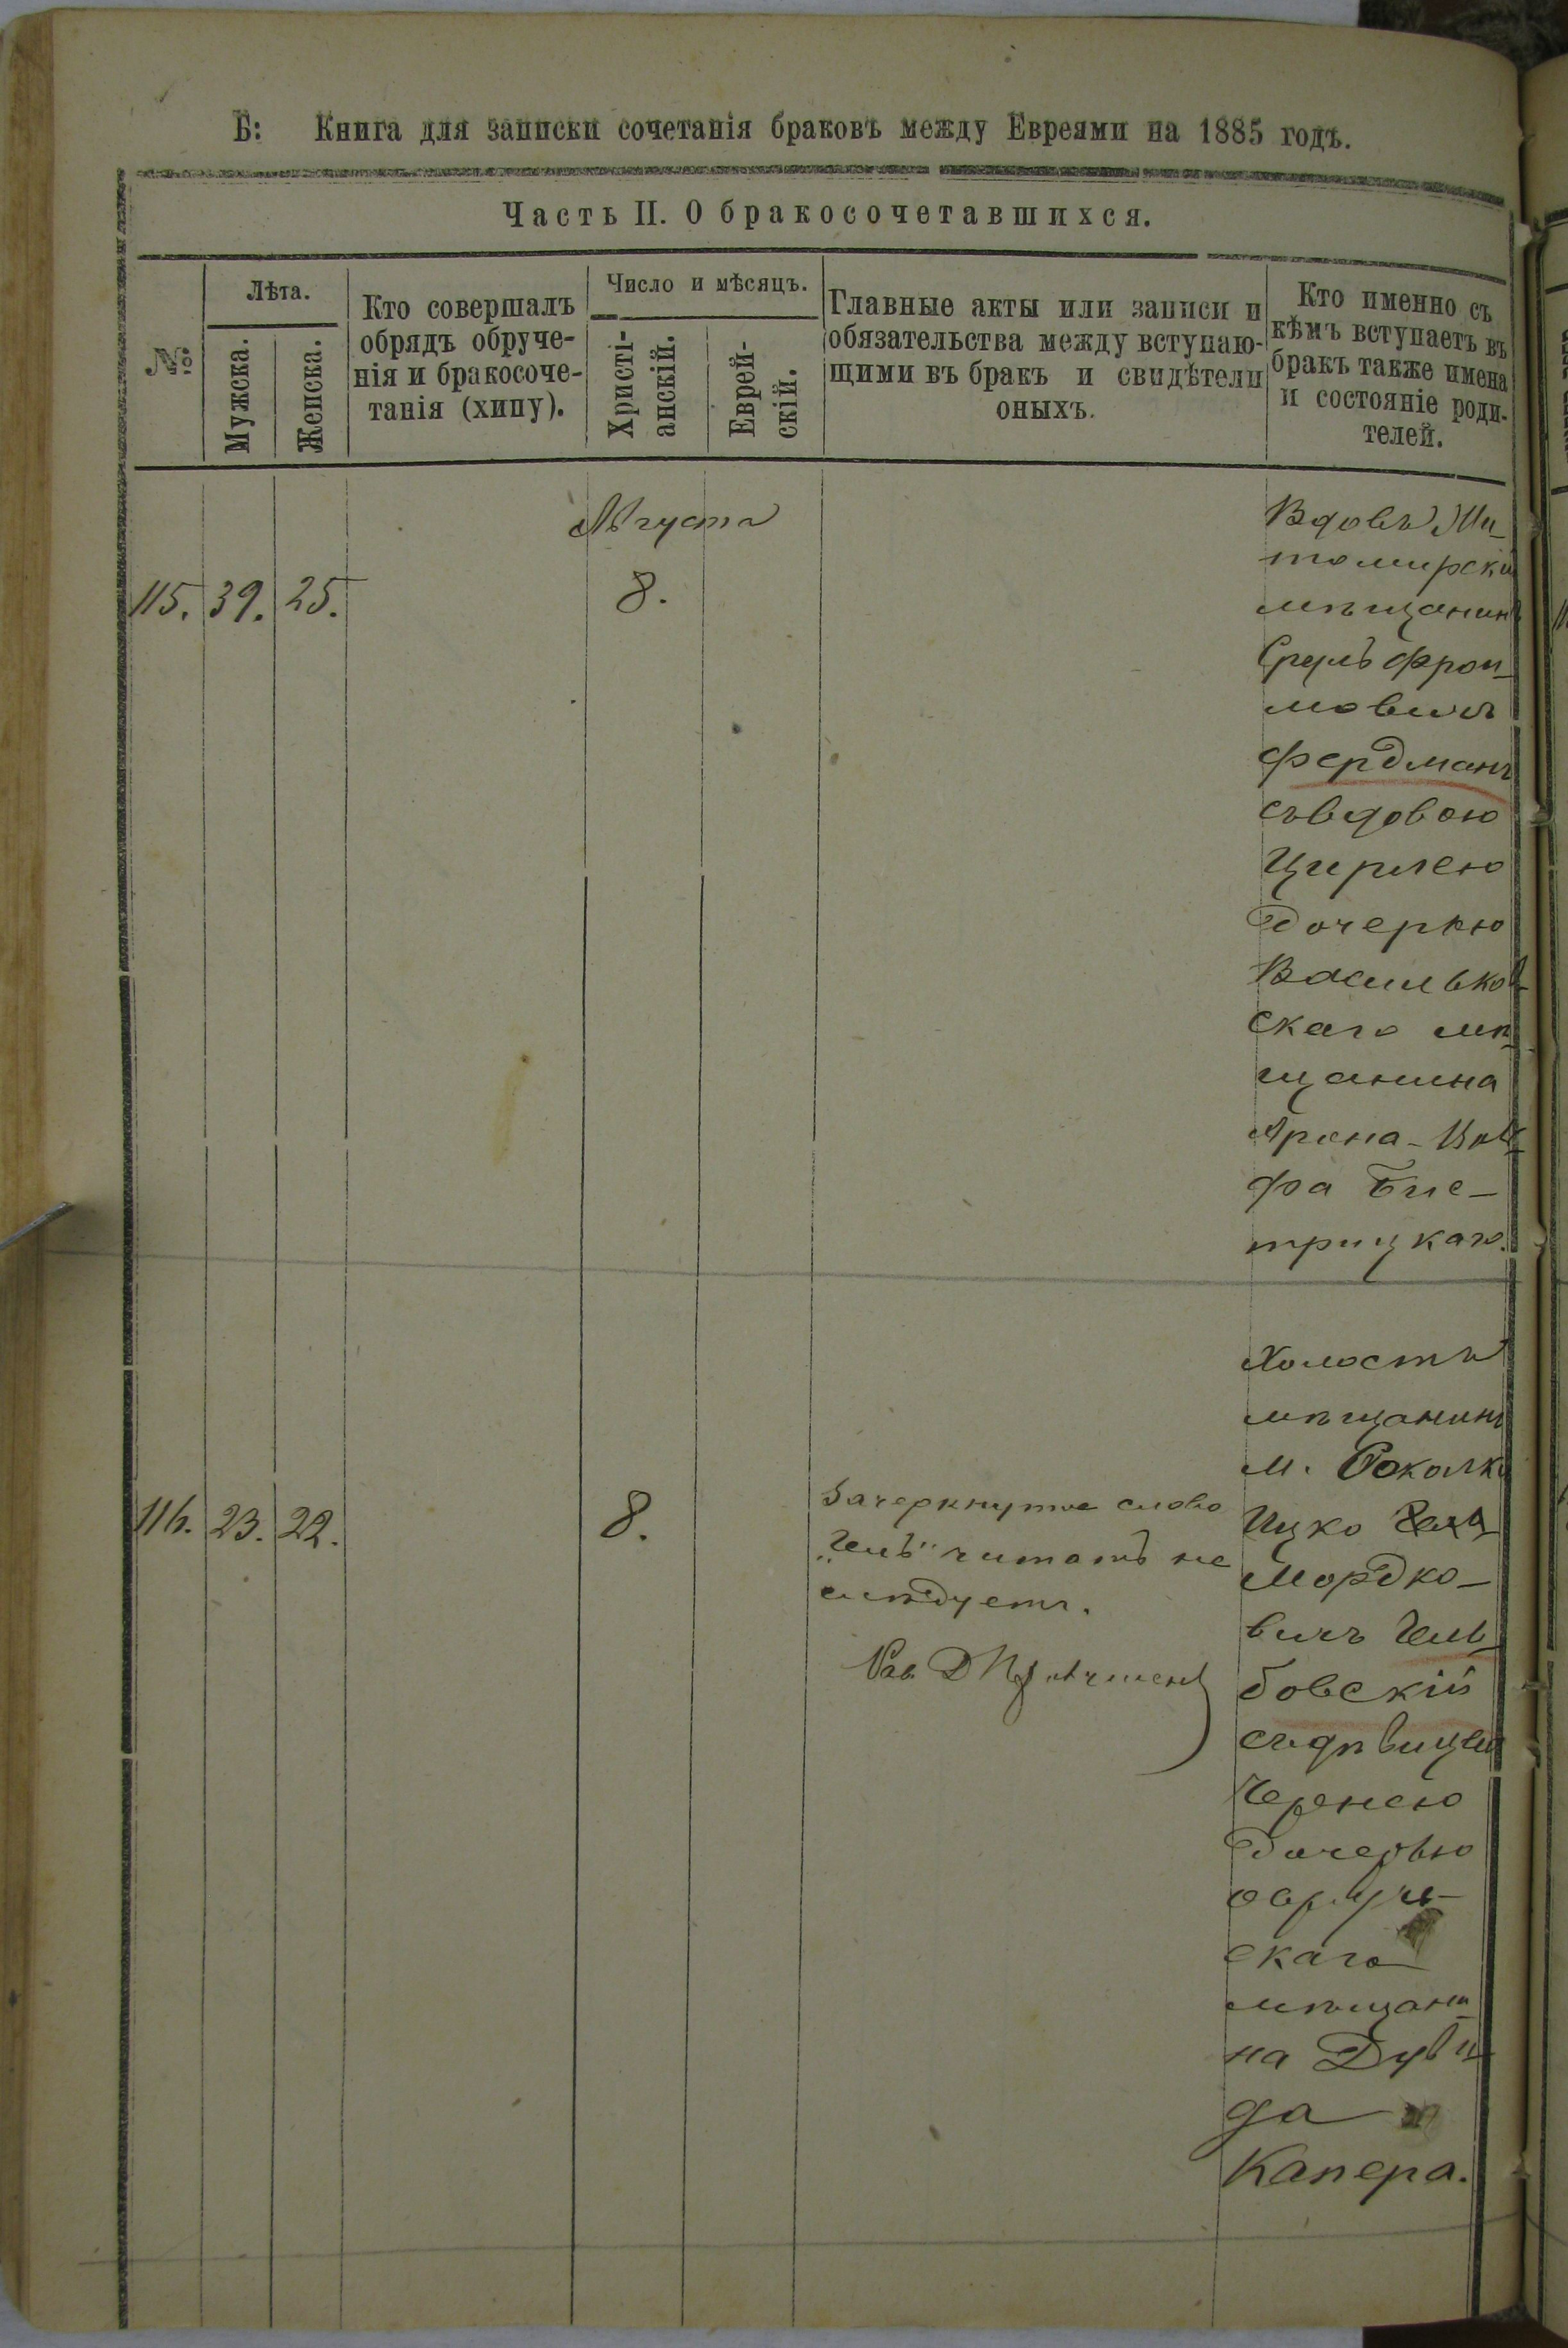 Б: Книга для записки сочетанія браковъ между Евреями на 1885 годъ.
Часть II. О бракосочетавшихся.
№
Лѣта.
Мужска.
Женска.
Кто совершалъ
обрядъ обруче-
нія и бракосоче-
танія (хипу).
Число и мѣсяцъ.
Христі-
анскій.
Еврей-
скій.
Главные акты или записи и
обязательства между вступаю-
щими въ бракъ и свидѣтели
оныхъ.
Кто именно съ
кѣмъ вступаетъ въ
бракъ также имена
и состояніе роди-
телей.
Августа
115. 39. 25. 8.
Вдовъ Жи-
томирскій
мѣщанинъ
Сруль Фрои-
мовичъ
Фердманъ
съ вдовою
Цирлею
дочерью
Васильков-
скаго мѣ-
щанина
Арона-Воль-
фа Бис-
трицкаго.
116. 23. 22. 8.
Зачеркнутое слово
„Гель" читать не
слѣдуетъ.
Рав. Д
Холостъ
мѣщанинъ
м. Рокалки
Ицко
Мордко-
вичъ Гель-
бовскій
съ дѣвицею
Чернею
дочерью
овруч-
скаго
мѣщани-
на Дуви-
да
Капера.